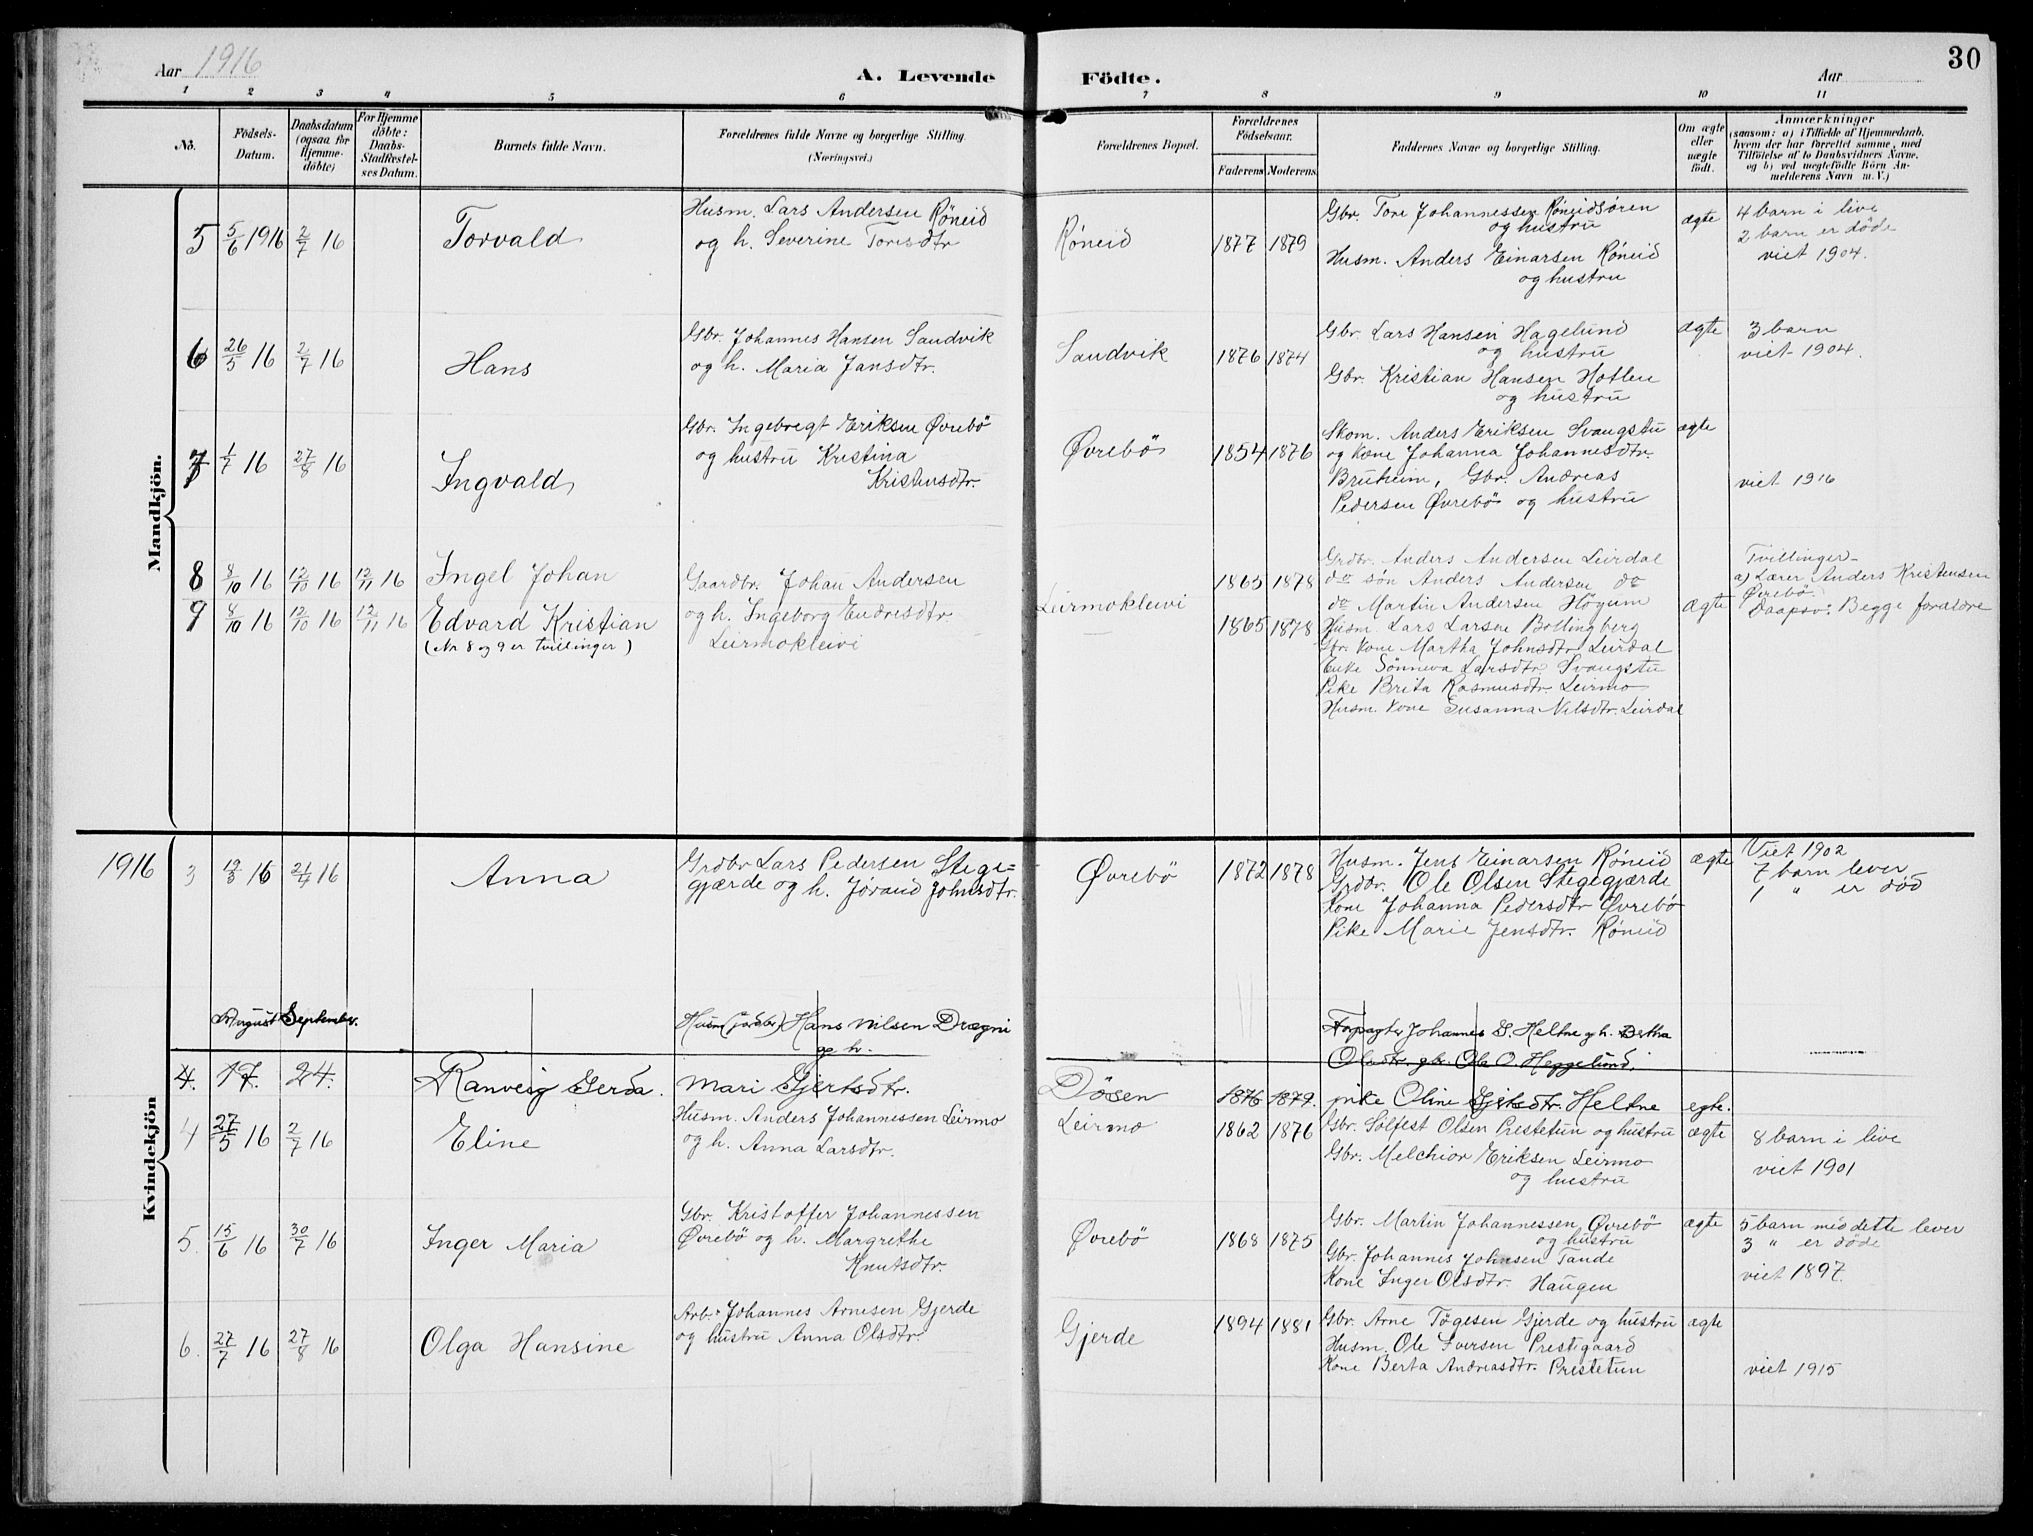 Aar 1916
A. Levende Födte.
Aar
30
1 2 3 4 5 6 7 8 9 10 11
No.
Födsels-Datum.
Daabsdatum (ogsaa for Hjemme-döbte)
For Hjemme döbte: Daabs-Stadfæstel-ses Datum.
Barnets fulde Navn.
Forældrenes fulde Navne og borgerlige Stilling.
(Næringsvei.)
Forældrenes Bopæl.
Forældrenes Födselsaar.
Faderens Moderens
Faddernes Navne og borgerlige Stilling.
Om ægte eller uægte födt.
Anmærkninger
(saasom: a) i Tilfælde af Hjemmedaab, hvem der har forrettet samme, med Tilföielse af to Daabsvidners Navne. og b) ved uegtefödte Börn An-melderens Navn m.V.)
Mandkjön.
5 5/6 1916 2/7 16 Torvald
Husm. Lars Andersen Röneid
og h. Severine Torisdtr
Röneid 1877 1879
Gbr. Tore Johannessen Röneidsören
og hustru
Husm. Anders Einarsen Röneid
og hustru
ægte
4 barn i live
2 barn er döde
viet 1904.
6 26/5 16 2/7 16 Hans
Gbr. Johannes Hansen Sandvik
og h. Maria Jansdtr.
Sandvik 1876 1874
Gbr. Lars Hansen Hagelund
og hustru
Gbr. Kristian Hansen Hotlen
og hustru
ægte
3 barn
viet 1904.
7 1/7 16 27/8 16 Ingvald
Gbr. Ingebregt Eriksen Øvrebö
og hustru Kristina
Kristensdtr.
Øvrebö 1854 1876
Skom. Anders Eriksen Svangstu
og kone Johanna Johannesdtr.
Bruheim, Gbr. Andreas
Pedersen Øvrebö og hustru
ægte
viet 1916
8 8/10 16 12/10 16 12/11 16 Ingel Johan
9 8/10 16 12/10 16 12/11 16 Edvard Kristian
(No 8 og 9 er tvillinger)
Gaardbr. Johan Andersen
og h. Ingeborg Endresdtr.
Leirmokleivi
Leirmokleivi
1865 1878
1865 1878
Grdbr. Anders Andersen Leirdal
do sön Anders Andersen do
do Martin Andersen Högum
Husm. Lars Larsen Bollingberg
Gbr. kone Martha Johnsdtr. Leirdal
Enke Sönneva Larsdtr. Svangstu
Pike Brita Rasmusdtr. Leirmo
Husm. kone Susanna Nilsdtr. Leirdal
ægte
Tvillinger
a) Lærer Anders Kristensen
Øvrebö.
Daapsv: Begge forældre
Kvindekjön
1916
3 16 24/4 16 Anna
Grdbr Lars Pedersen Stege-
gjærde og h. Jörand Johnsdtr.
Øvrebö 1872 1878
Husm. Jens Einarsen Röneid
Grdbr. Ole Olsen Stegegjærde
Kone Johanna Pedersdtr Øvrebö
Pike Marie Jensdtr. Röneid
ægte
Viet 1902
7 barn lever
1 " er död
August September.
Husm (jordbr) Hans Nilsen Drægni
og h.
Forpagter Johannes S. Heltne og h. Dertha
Olsdtr. gbr. Ola O. Heggelund.
4. 17. 24. Ranveig Gerda. Mari Gjertsdtr.
Dösen 1876 1879. pike Oline Gjertsdtr. Heltne egte.
4 27/5 16 2/7 16 Eline
Husm. Anders Johannessen Leirmo
og h. Anna Larsdtr.
Leirmo 1862 1876
Gbr. Solfest Olsen Prestetun og hustru
Gbr. Melchior Eriksen Leirmo
og hustru
ægte
8 barn i live
viet 1901
5. 15/6 16 30/7 16 Inger Maria
Gbr. Kristoffer Johannessen
Øvrebö og h. Margrethe
Knutsdtr.
Øvrebö 1868 1875
Gbr. Martin Johannessen Øvrebö
og hustru
Gbr. Johannes Johnsen Tande
Kone Inger Olsdtr. Haugen
ægte
5 barn med dette lever
3 " er döde
viet 1897.
6. 27/7 16 27/8 16 Olga Hansine
Arb. Johannes Arnesen Gjerde
og hustru Anna Olsdtr.
Gjerde 1894 1881
Gbr. Arne Tögesen Gjerde og hustru
Husm. Ole Iversen Prestegaard
Kone Berta Andreasdtr. Prestetun
ægte
viet 1915